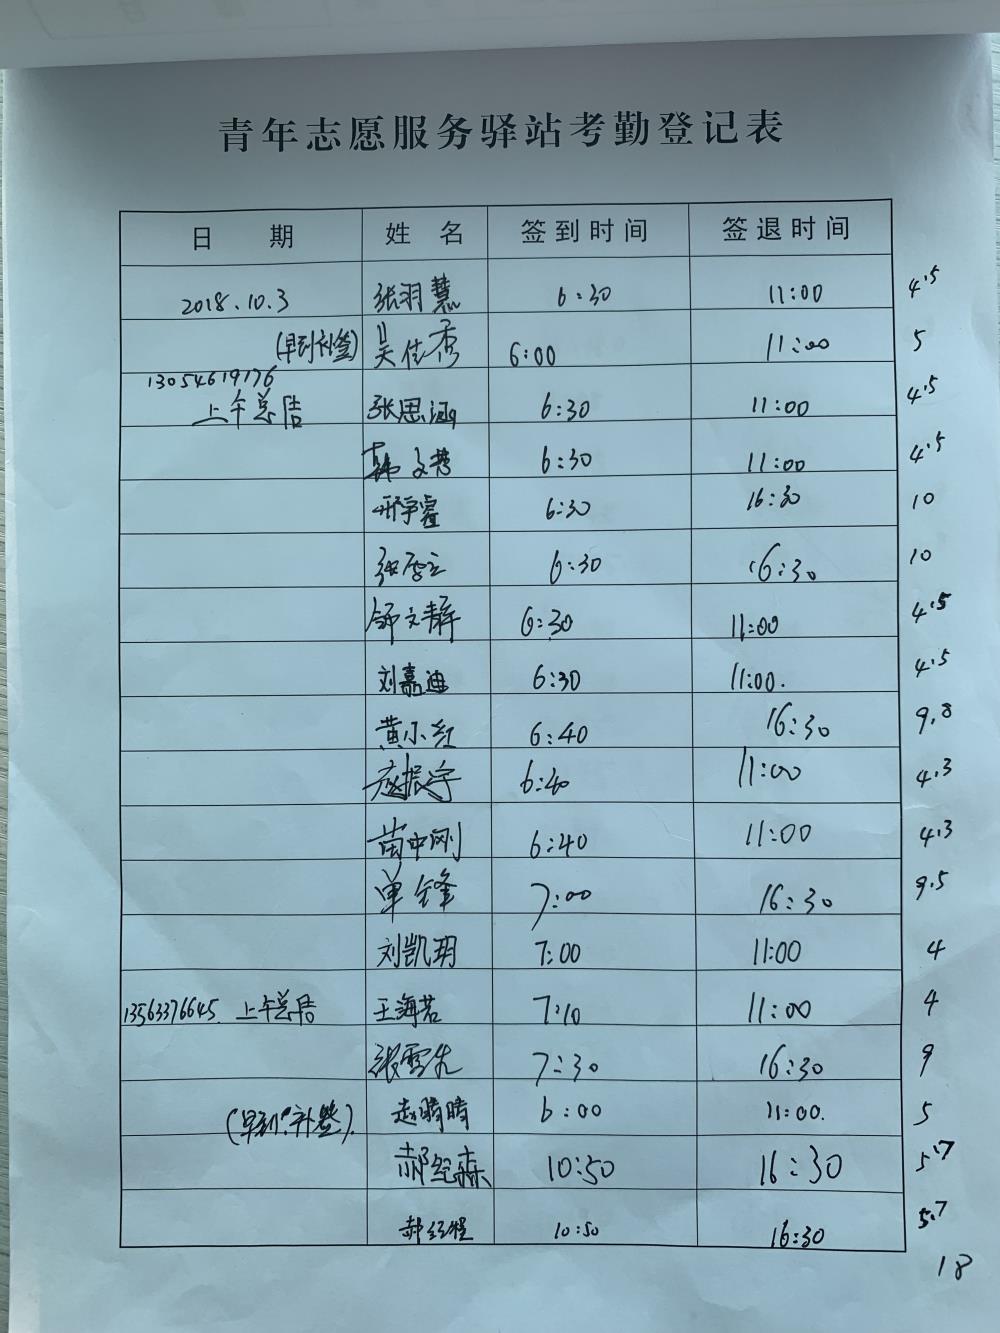 青年志愿服务驿站考勤登记表
日 期 姓 名 签到时间 签退时间
2018.10.3 张羽慧 6:30 11:00 4.5
(早到补签) 吴佳秀 6:00 11:00 5
13054619176
上午总结 张思涵 6:30 11:00 4.5
韩文慧 6:30 11:00 4.5
邢宇睿 6:30 16:30 10
张 6:30 16:30 10
舒文静 6:30 11:00 4.5
刘嘉迪 6:30 11:00. 4.5
黄小红 6:40 16:30 9.8
赵振宇 6:40 11:00 4.3
苗中刚 6:40 11:00 4.3
单锋 7:00 16:30 9.5
刘凯玥 7:00 11:00 4
13563376645. 上午总结 王海若 7:10 11:00 4
张雪 7:30 16:30 9
(早到.补签). 赵晴晴 6:00 11:00. 5
郝纪森 10:50 16:30 5.7
郝经程 10:50 16:30 5.7
18